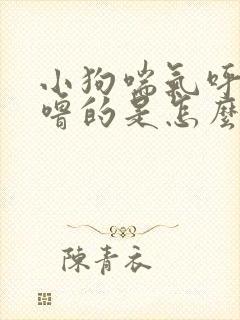 小狗喘氣呼
嚕的是怎麼
陳青衣